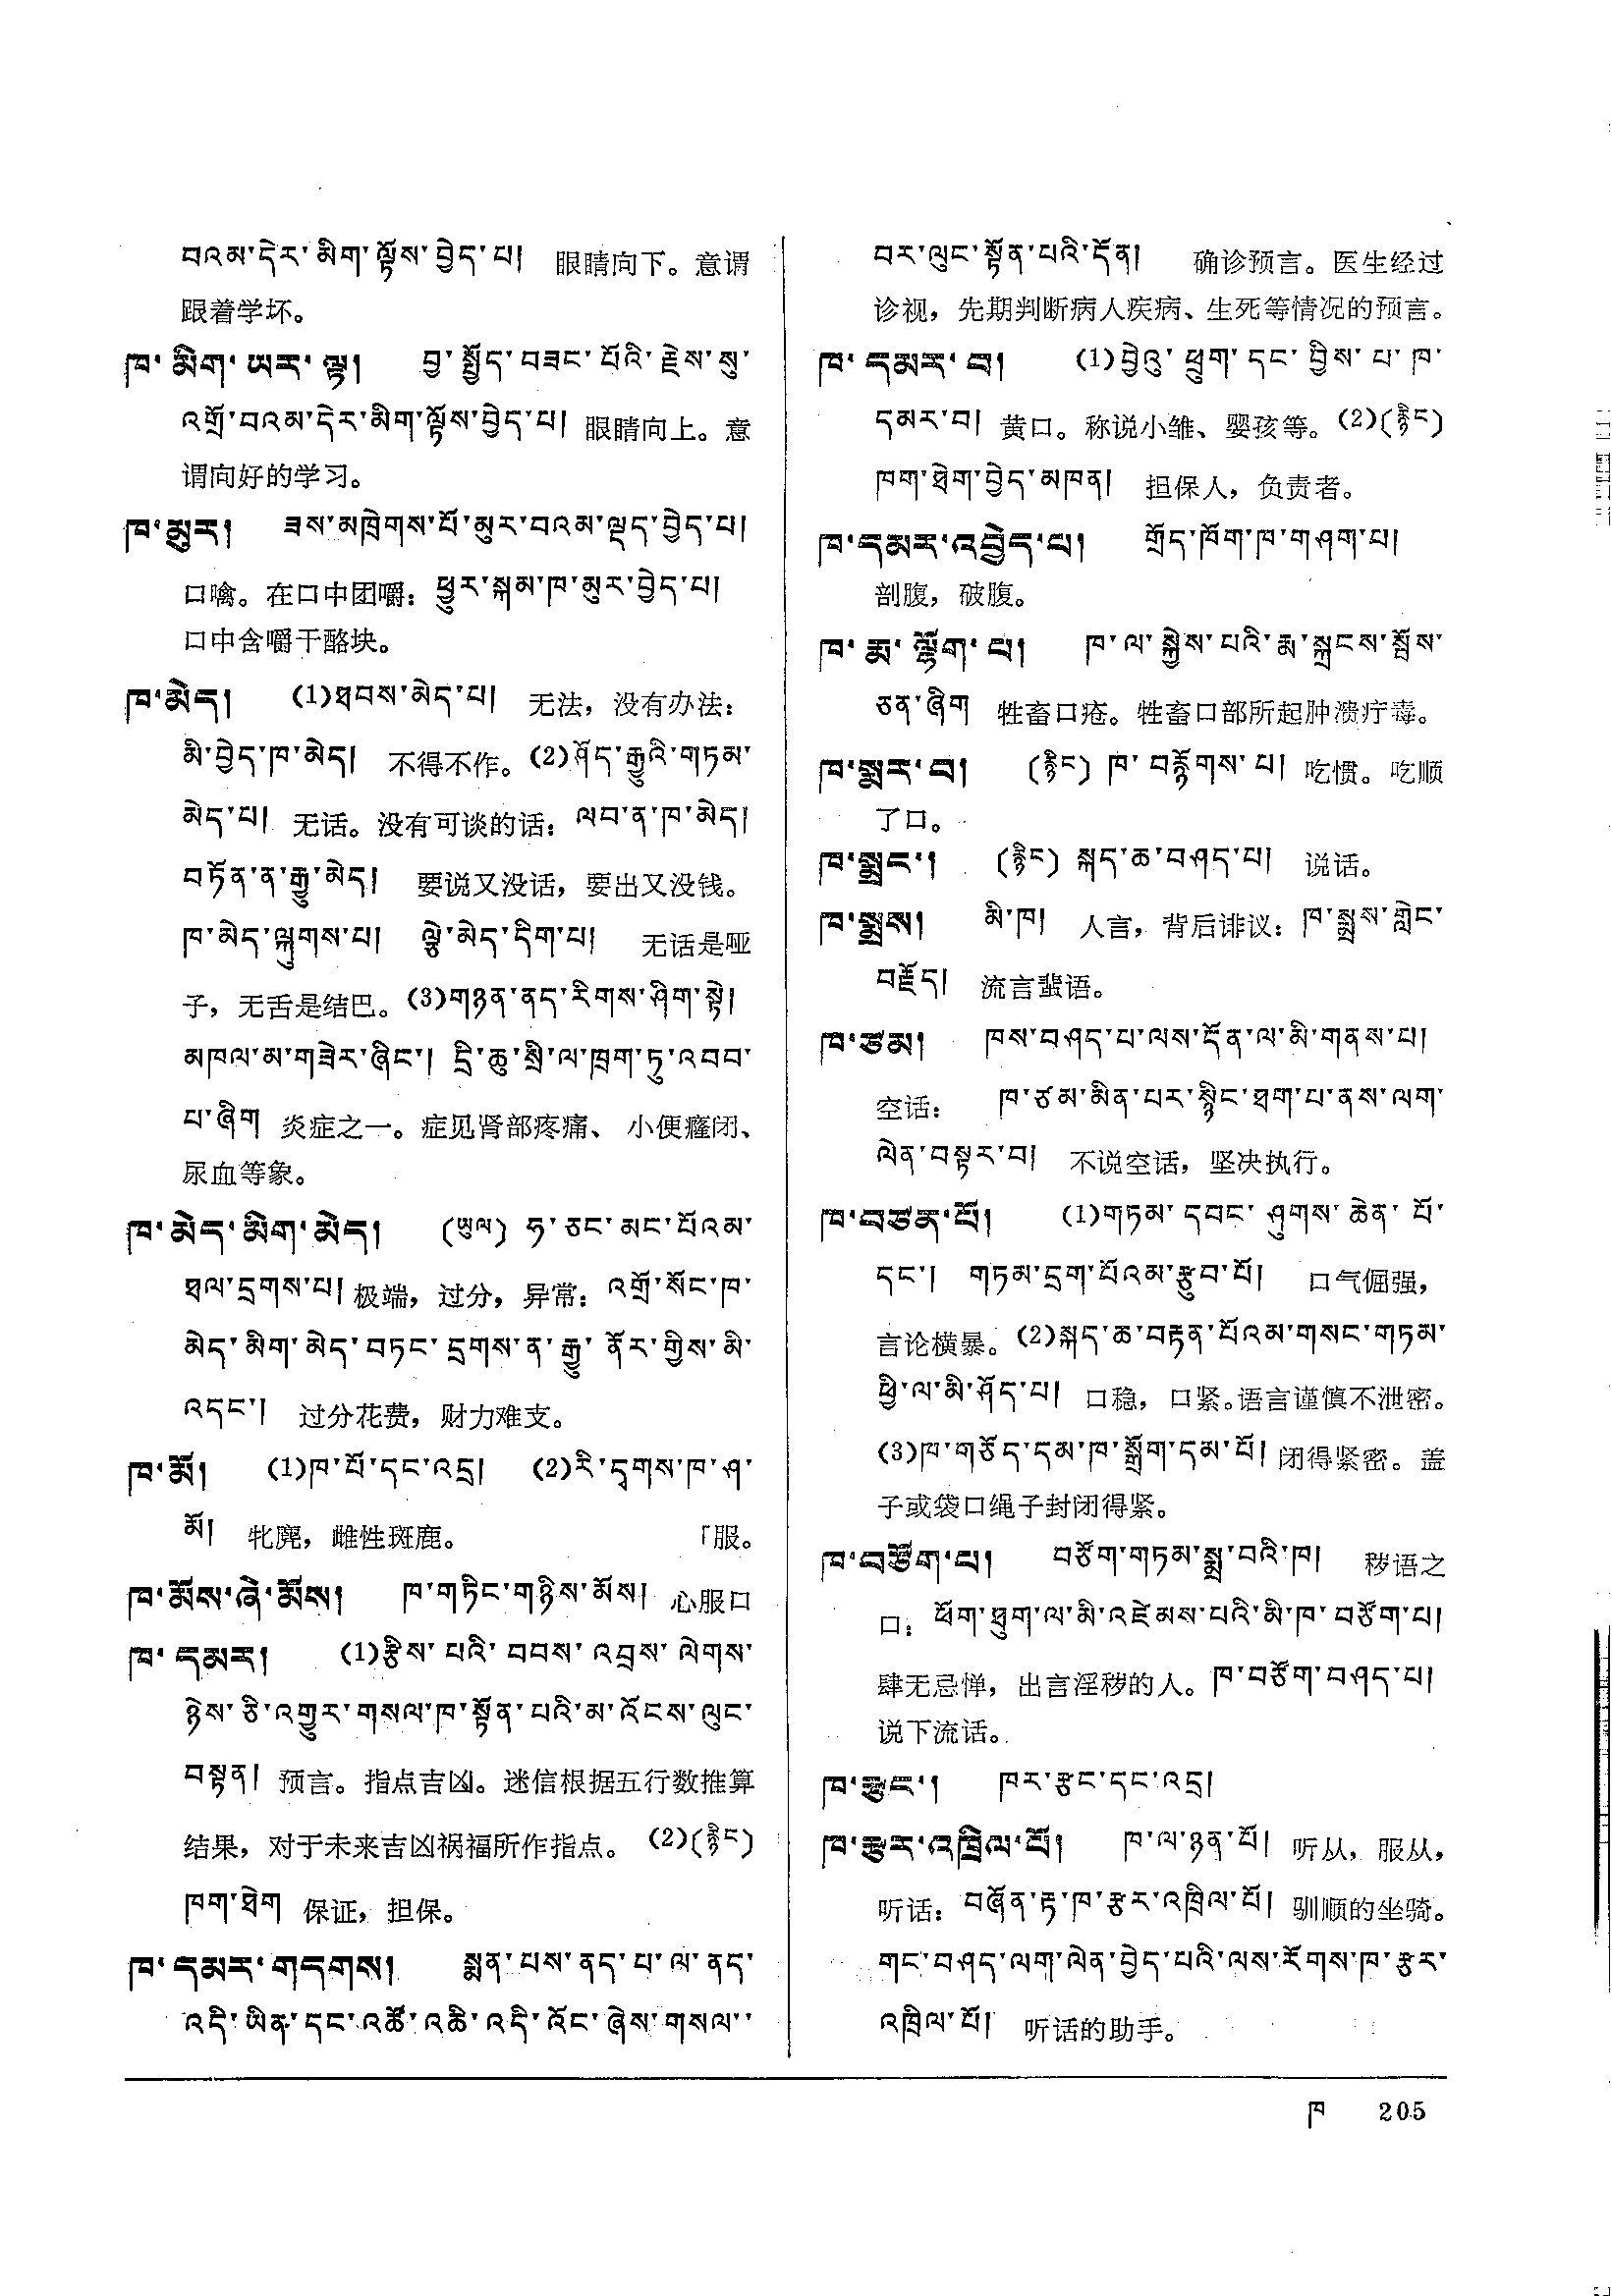 བའམ་དེར་མིག་ལྟོས་བྱེད་པ། 眼睛向下。意谓
跟着学坏。
ཁ་མིག་ཡར་ལྟ། བྱ་སྤྱོད་བཟང་པོའི་རྗེས་སུ་
འགྲོ་བའམ་དེར་མིག་ལྟོས་བྱེད་པ། 眼睛向上。意
谓向好的学习。
ཁ་མུར། ཟས་མཁྲེགས་པོ་མུར་བའམ་ལྡད་བྱེད་པ།
口噙。在口中团嚼：ཕྱུར་སྐམ་ཁ་མུར་བྱེད་པ།
口中含嚼干酪块。
ཁ་མེད། (1)ཐབས་མེད་པ། 无法，没有办法：
མི་བྱེད་ཁ་མེད། 不得不作。(2)ཤོད་རྒྱུའི་གཏམ་
མེད་པ། 无话。没有可谈的话：ལབ་ན་ཁ་མེད།
བཏོན་ན་རྒྱུ་མེད། 要说又没话，要出又没钱。
ཁ་མེད་ལྐུགས་པ། ལྕེ་མེད་དིག་པ། 无话是哑
子，无舌是结巴。(3)གཉན་ནད་རིགས་ཤིག་སྟེ།
མཁལ་མ་གཟེར་ཞིང་། དྲི་ཆུ་སྲི་ལ་ཁྲག་ཏུ་འབབ་
པ་ཞིག 炎症之一。症见肾部疼痛、小便癃闭、
尿血等象。
ཁ་མེད་མིག་མེད། (ཡུལ) ཧ་ཅང་མང་པོའམ་
ཐལ་དྲགས་པ། 极端，过分，异常：འགྲོ་སོང་ཁ་
མེད་མིག་མེད་བཏང་དྲགས་ན་རྒྱུ་ནོར་གྱིས་མི་
འདང་། 过分花费，财力难支。
ཁ་མོ། (1)ཁ་པོ་དང་འདྲ། (2)རི་དྭགས་ཁ་ཤ་
མོ། 牝麂，雌性斑鹿。 「服。
ཁ་མོས་ཞེ་མོས། ཁ་གཏིང་གཉིས་མོས། 心服口
ཁ་དམར། (1)རྩིས་པའི་བབས་འབྲས་ལེགས་
ཉེས་ཅི་འགྱུར་གསལ་ཁ་སྟོན་པའི་མ་འོངས་ལུང་
བསྟན། 预言。指点吉凶。迷信根据五行数推算
结果，对于未来吉凶祸福所作指点。(2)(རྙིང)
ཁག་ཐེག 保证，担保。
ཁ་དམར་གདགས། སྨན་པས་ནད་པ་ལ་ནད་
འདི་ཡིན་དང་འཚོ་འཆི་འདི་འོང་ཞེས་གསལ་་
བར་ལུང་སྟོན་པའི་དོན། 确诊预言。医生经过
诊视，先期判断病人疾病、生死等情况的预言。
ཁ་དམར་བ། (1)བྱེའུ་ཕྲུག་དང་བྱིས་པ་ཁ་
དམར་བ། 黄口。称说小雏、婴孩等。(2)(རྙིང)
ཁག་ཐེག་བྱེད་མཁན། 担保人，负责者。
ཁ་དམར་འབྱེད་པ། གྲོད་ཁོག་ཁ་གཤག་པ།
剖腹，破腹。
ཁ་རྨ་ལྷོག་པ། ཁ་ལ་སྐྱེས་པའི་རྨ་སྐྲངས་སྦོས་
ཅན་ཞིག 牲畜口疮。牲畜口部所起肿溃疔毒。
ཁ་སྨར་བ། (རྙིང) ཁ་བརྙོགས་པ། 吃惯。吃顺
了口。
ཁ་སྨྲང་། (རྙིང) སྐད་ཆ་བཤད་པ། 说话。
ཁ་སྨྲས། མི་ཁ། 人言，背后诽议：ཁ་སྨྲས་གླེང་
བརྗོད། 流言蜚语。
ཁ་ཙམ། ཁས་བཤད་པ་ལས་དོན་ལ་མི་གནས་པ།
空话：ཁ་ཙམ་མིན་པར་སྙིང་ཐག་པ་ནས་ལག་
ལེན་བསྟར་བ། 不说空话，坚决执行。
ཁ་བཙན་པོ། (1)གཏམ་དབང་ཤུགས་ཆེན་པོ་
དང་། གཏམ་དྲག་པོའམ་རྩུབ་པོ། 口气倔强，
言论横暴。(2)སྐད་ཆ་བརྟན་པོའམ་གསང་གཏམ་
ཕྱི་ལ་མི་ཤོད་པ། 口稳，口紧。语言谨慎不泄密。
(3)ཁ་གཅོད་དམ་ཁ་སྒྲོག་དམ་པོ། 闭得紧密。盖
子或袋口绳子封闭得紧。
ཁ་བཙོག་པ། བཙོག་གཏམ་སྨྲ་བའི་ཁ། 秽语之
口：ཕོག་ཐུག་ལ་མི་འཛེམས་པའི་མི་ཁ་བཙོག་པ།
肆无忌惮，出言淫秽的人。ཁ་བཙོག་བཤད་པ།
说下流话。
ཁ་རྩང་། ཁར་རྩང་དང་འདྲ།
ཁ་རྩར་འཁྲིལ་པོ། ཁ་ལ་ཉན་པོ། 听从，服从，
听话：བཞོན་རྟ་ཁ་རྩར་འཁྲིལ་པོ། 驯顺的坐骑。
གང་བཤད་ལག་ལེན་བྱེད་པའི་ལས་རོགས་ཁ་རྩར་
འཁྲིལ་པོ། 听话的助手。
ཁ 205